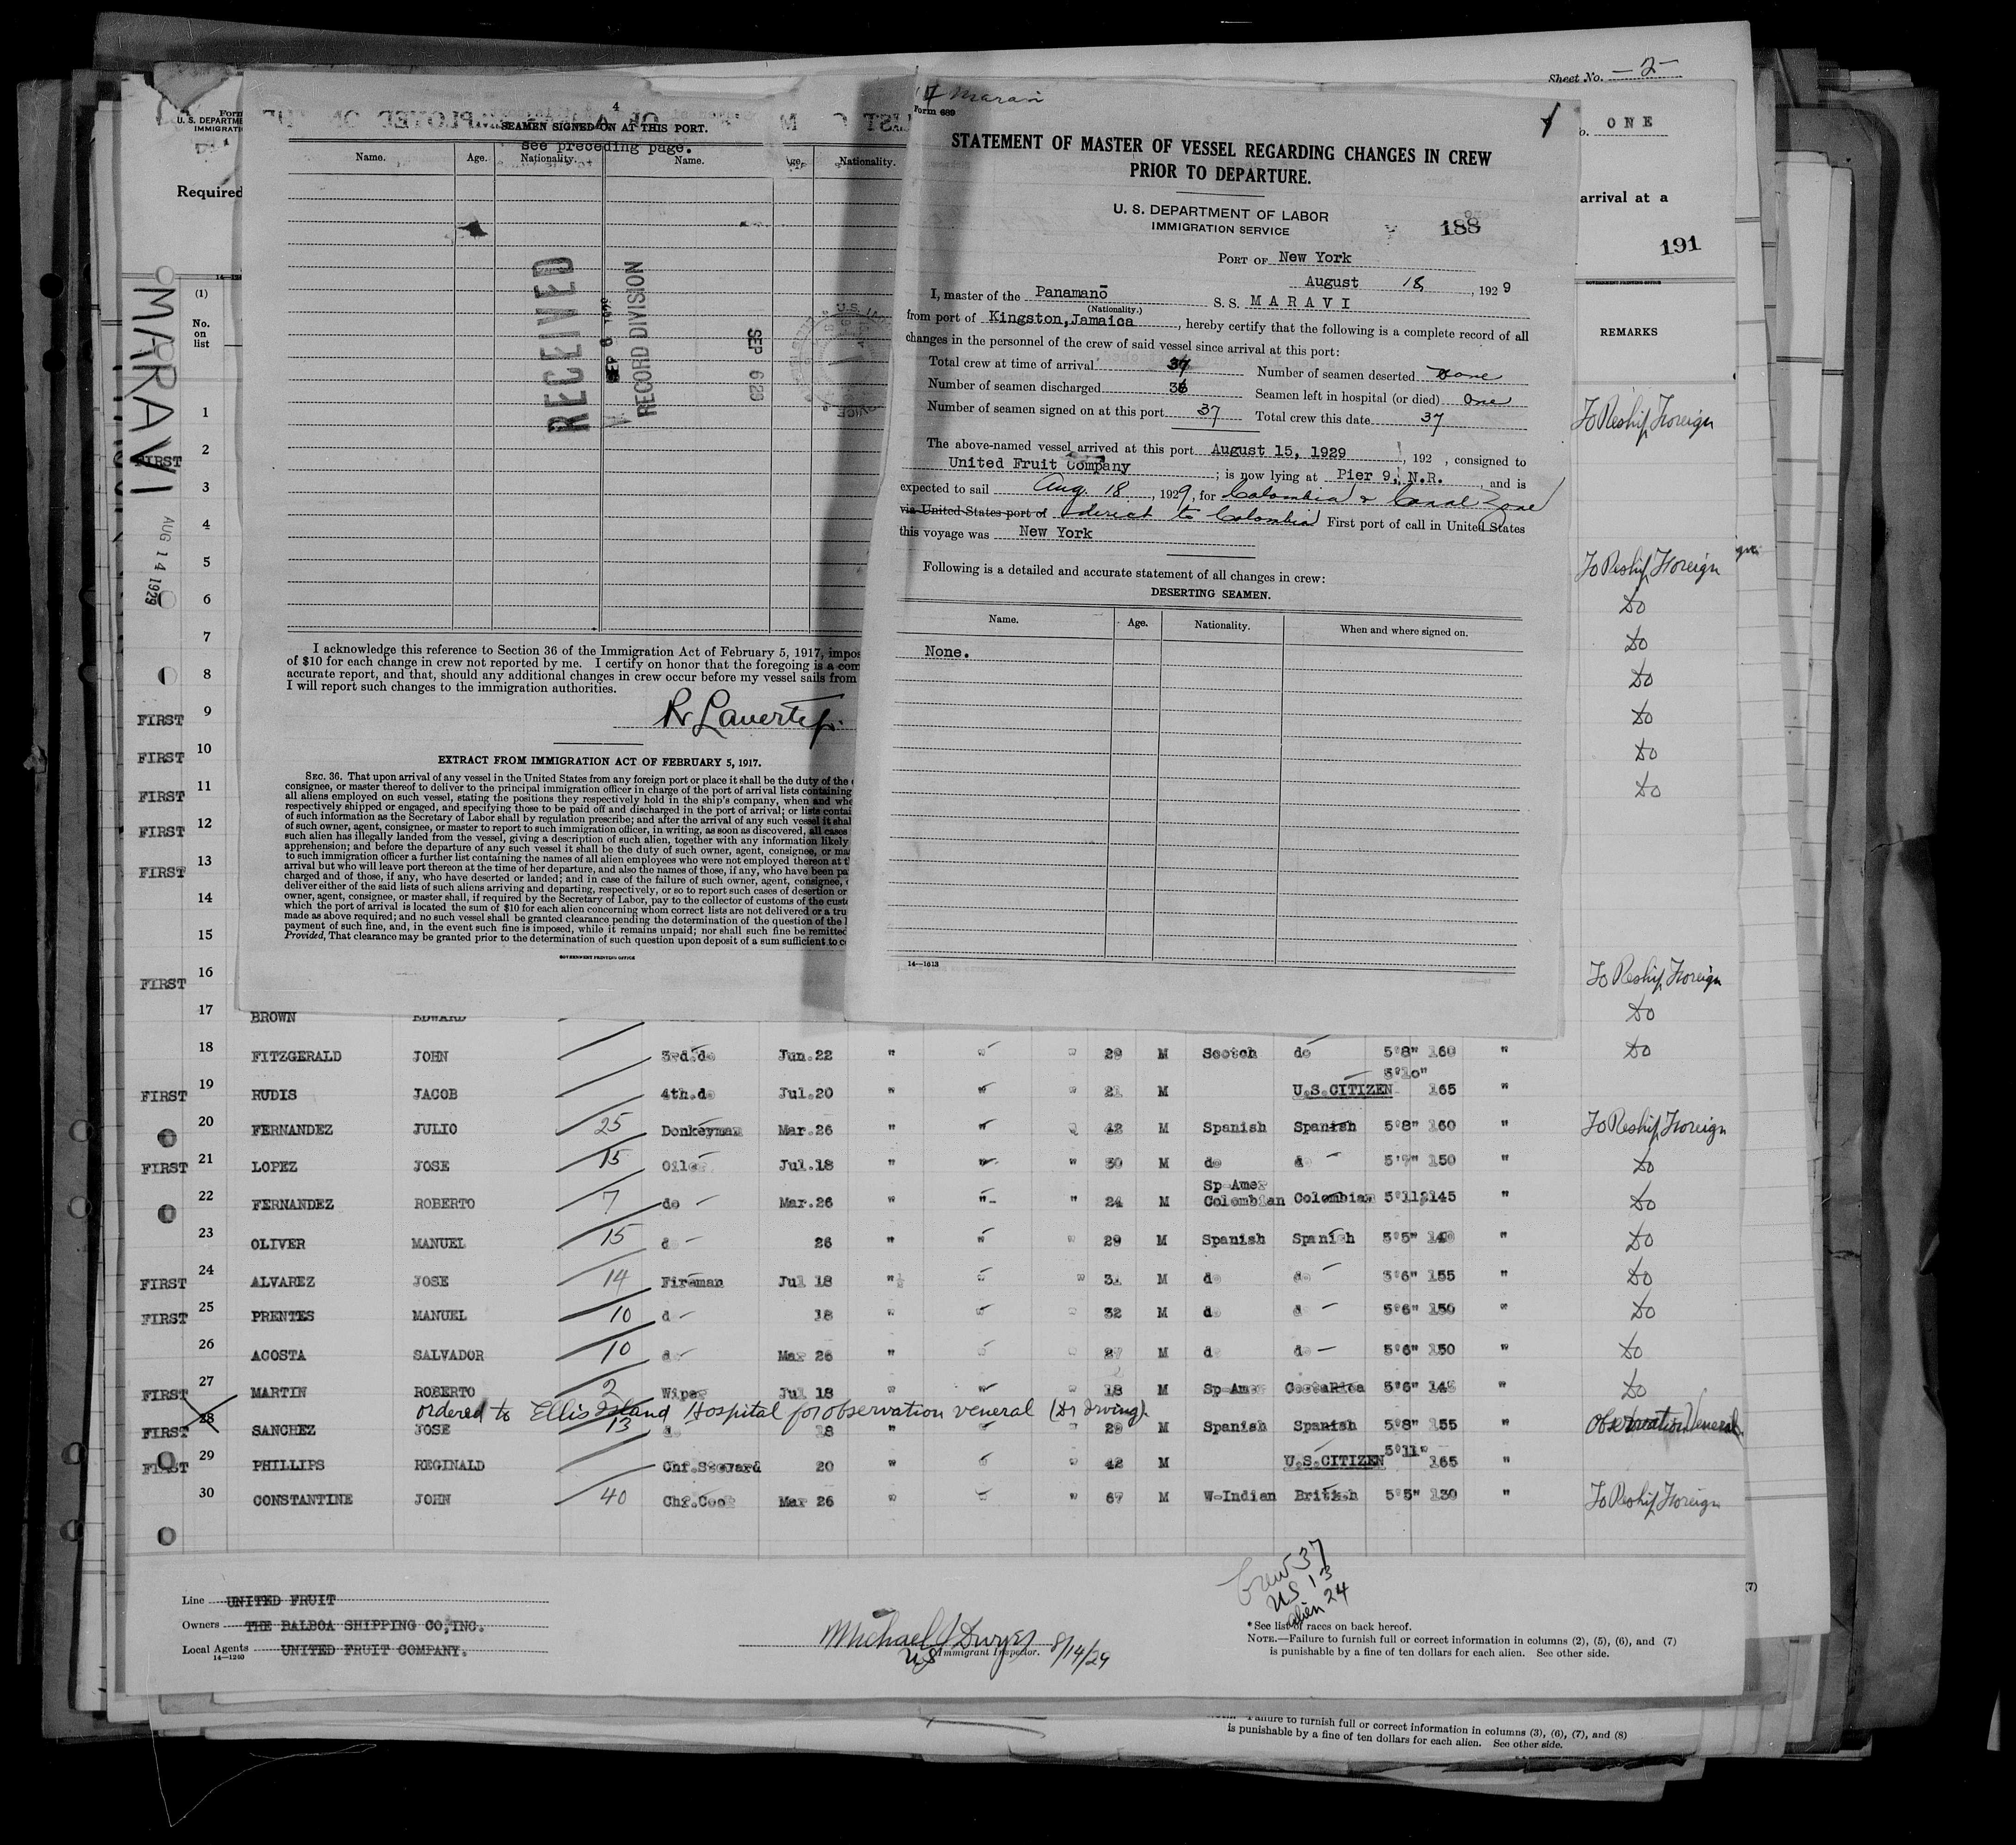 Sheet No. -2-
Form
U. S. DEPARTME
IMMIGRATI
Required
4
SEAMEN SIGNED ON AT THIS PORT.
See preceding page.
Name. Age. Nationality. Name. Age. Nationality.
RECEIVED
RECORD DIVISION
SEP 6 29
I acknowledge this reference to Section 36 of the Immigration Act of February 5, 1917, impos
of $10 for each change in crew not reported by me. I certify on honor that the foregoing is a com
accurate report, and that, should any additional changes in crew occur before my vessel sails from
I will report such changes to the immigration authorities.
EXTRACT FROM IMMIGRATION ACT OF FEBRUARY 5, 1917.
SEC. 36. That upon arrival of any vessel in the United States from any foreign port or place it shall be the duty of the
consignee, or master thereof to deliver to the principal immigration officer in charge of the port of arrival lists containing
all aliens employed on such vessel, stating the positions they respectively hold in the ship's company, when and whe
respectively shipped or engaged, and specifying those to be paid off and discharged in the port of arrival; or lists contai
of such information as the Secretary of Labor shall by regulation prescribe; and after the arrival of any such vessel it shal
of such owner, agent, consignee, or master to report to such immigration officer, in writing, as soon as discovered, all cases
such alien has illegally landed from the vessel, giving a description of such alien, together with any information likely
apprehension; and before the departure of any such vessel it shall be the duty of such owner, agent, consignee, or ma
to such immigration officer a further list containing the names of all alien employees who were not employed thereon at t
arrival but who will leave port thereon at the time of her departure, and also the names of those, if any, who have been pa
charged and of those, if any, who have deserted or landed; and in case of the failure of such owner, agent, consignee,
deliver either of the said lists of such aliens arriving and departing, respectively, or so to report such cases of desertion or
owner, agent, consignee, or master shall, if required by the Secretary of Labor, pay to the collector of customs of the cust
which the port of arrival is located the sum of $10 for each alien concerning whom correct lists are not delivered or a tru
made as above required; and no such vessel shall be granted clearance pending the determination of the question of the l
payment of such fine, and, in the event such fine is imposed, while it remains unpaid; nor shall such fine be remitted
Provided, That clearance may be granted prior to the determination of such question upon deposit of a sum sufficient to c
GOVERNMENT PRINTING OFFICE
Form 689
STATEMENT OF MASTER OF VESSEL REGARDING CHANGES IN CREW
PRIOR TO DEPARTURE.
U. S. DEPARTMENT OF LABOR
IMMIGRATION SERVICE
188
PORT OF New York
August 18, 1929
I, master of the Panamano S. S. MARAVI
(Nationality.)
from port of Kingston,Jamaica, hereby certify that the following is a complete record of all
changes in the personnel of the crew of said vessel since arrival at this port:
Total crew at time of arrival 37 Number of seamen deserted None
Number of seamen discharged 36 Seamen left in hospital (or died) One
Number of seamen signed on at this port 37 Total crew this date 37
The above-named vessel arrived at this port August 15, 1929, 192 , consigned to
United Fruit Company ; is now lying at Pier 9, N.R. , and is
expected to sail Aug. 18, 1929, for Colombia & Canal Zone
via United States port of direct to Colombia First port of call in United States
this voyage was New York
Following is a detailed and accurate statement of all changes in crew:
DESERTING SEAMEN.
Name. Age. Nationality. When and where signed on.
None.
14-1613
ONE
arrival at a
191
GOVERNMENT PRINTING OFFICE
REMARKS
MARAVI
AUG 14 1929
(1)
No.
on
list
1 To Reship Foreign
2 FIRST
3
4
5 To Reship Foreign
6 Do
7 Do
8 Do
FIRST 9 Do
FIRST 10 Do
FIRST 11 Do
FIRST 12
FIRST 13
14
15
FIRST 16 To Reship Foreign
17 BROWN EDWARD Do
18 FITZGERALD JOHN 3rd.do Jun.22 " " " 29 M Scotch do 5'8" 160 " Do
FIRST 19 RUDIS JACOB 4th.do Jul.20 " " " 21 M U.S.CITIZEN 5'10" 165 "
20 FERNANDEZ JULIO 25 Donkeyman Mar.26 " " " 42 M Spanish Spanish 5'8" 160 " To Reship Foreign
FIRST 21 LOPEZ JOSE 15 Oiler Jul.18 " " " 30 M do do 5'7" 150 " Do
22 FERNANDEZ ROBERTO 7 do Mar.26 " " " 24 M Sp-Amer Colombian Colombian 5'11" 145 " Do
23 OLIVER MANUEL 15 do 26 " " " 29 M Spanish Spanish 5'5" 140 " Do
FIRST 24 ALVAREZ JOSE 14 Fireman Jul 18 " " " 31 M do do 5'6" 155 " Do
FIRST 25 PRENTES MANUEL 10 do 18 " " " 32 M do do 5'6" 150 " Do
26 ACOSTA SALVADOR 10 do Mar 26 " " " 27 M do do 5'6" 150 " Do
FIRST 27 MARTIN ROBERTO 2 Wiper Jul 18 " " " 18 M Sp-Amer CostaRica 5'6" 145 " Do
ordered to Ellis Island Hospital for observation veneral (Dr Irving)
FIRST 28 SANCHEZ JOSE 13 do 18 " " " 29 M Spanish Spanish 5'8" 155 Observation Veneral
FIRST 29 PHILLIPS REGINALD Chf.Steward 20 " " " 42 M U.S.CITIZEN 5'11" 165 "
30 CONSTANTINE JOHN 40 Chf.Cook Mar 26 " " " 67 M W-Indian British 5'5" 130 " To Reship Foreign
Crew 37
US 13
alien 24
Line UNITED FRUIT
Owners THE BALBOA SHIPPING CO,INC.
Local Agents UNITED FRUIT COMPANY.
14-1240
Michael J Dwyer 8/14/29
US Immigrant Inspector.
* See list of races on back hereof.
NOTE.—Failure to furnish full or correct information in columns (2), (5), (6), and (7)
is punishable by a fine of ten dollars for each alien. See other side.
(7)
Failure to furnish full or correct information in columns (3), (6), (7), and (8)
is punishable by a fine of ten dollars for each alien. See other side.